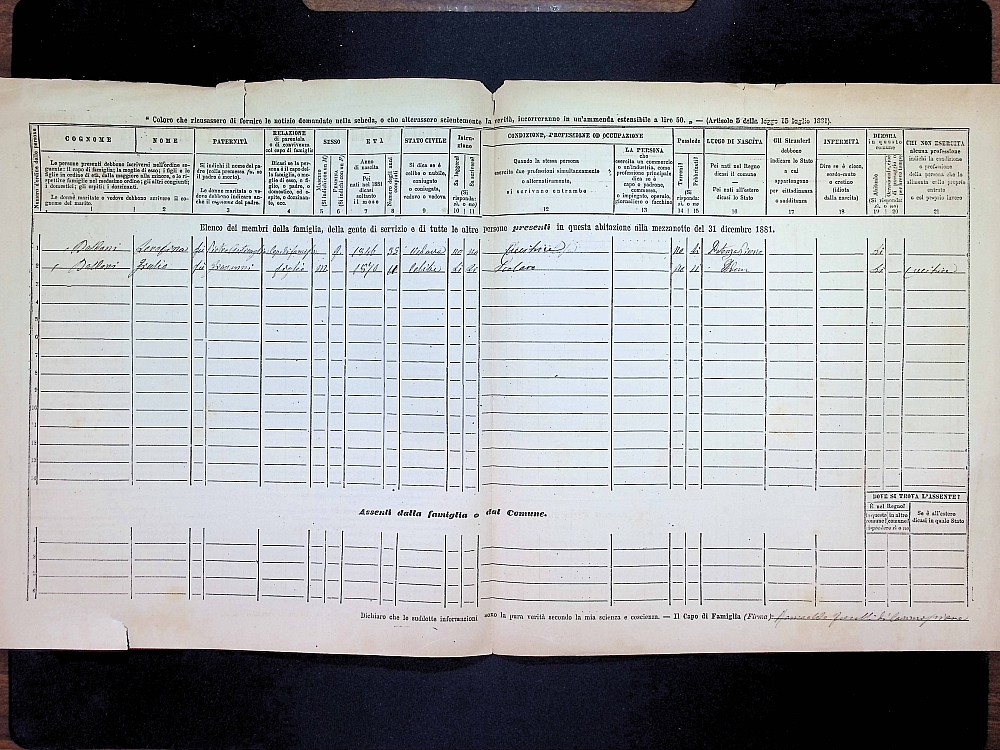 " Coloro che ricusassero di fornire le notizie domandate nella scheda, o che alterassero scientemente la verità, incorreranno in un'ammenda estensibile a lire 50. „ — (Articolo 5 della legge 15 luglio 1881).
COGNOME NOME PATERNITÀ RELAZIONE di parentela o di convivenza col capo di famiglia SESSO ETÀ STATO CIVILE Istruzione CONDIZIONE, PROFESSIONE OD OCCUPAZIONE Possiede LUOGO DI NASCITA Gli Stranieri debbono indicare lo Stato a cui appartengono per cittadinanza o sudditanza INFERMITÀ DIMORA in questo comune CHI NON ESERCITA alcuna professione indichi la condizione o professione della persona che lo alimenta colla propria entrata o col proprio lavoro
Le persone presenti debbono iscriversi nell'ordine seguente: il capo di famiglia; la moglie di esso; i figli e le figlie in ordine di età, dalla maggiore alla minore, e le rispettive famiglie nel medesimo ordine; gli altri congiunti; i domestici; gli ospiti; i dozzinanti.
Le donne maritate o vedove debbono scrivere il cognome del marito.
Si indichi il nome del padre (colla premessa fu se il padre è morto).
Le donne maritate o vedove debbono indicare anche il cognome del padre.
Dicasi se la persona è il capo della famiglia, o moglie di esso, o figlio, o padre, o domestico, od ospite, o dozzinante, ecc.
Maschio (Si indichi con M)
Femmina (Si indichi con F)
Anno di nascita
Pei nati nel 1881 dicasi soltanto il mese
Numero degli anni compiuti
Si dica se è celibe o nubile, coniugato o coniugata, vedovo o vedova
Sa leggere? Sa scrivere? (Si risponda: sì o no)
Quando la stessa persona esercita due professioni simultaneamente o alternativamente, si scrivano entrambe
LA PERSONA che esercita un commercio o un'industria, come professione principale dica se è capo o padrone, commesso, o impiegato, operaio, giornaliero o facchino
Terreni? Fabbricati? (Si risponda: sì o no)
Pei nati nel Regno dicasi il comune
Pei nati all'estero dicasi lo Stato
Dire se è cieco, sordo-muto o cretino (idiota dalla nascita)
1 2 3 4 5 6 7 8 9 10 11 12 13 14 15 16 17 18 19 20 21
Elenco dei membri della famiglia, della gente di servizio e di tutte le altre persone presenti in questa abitazione nella mezzanotte del 31 dicembre 1881.
Belloni Serafina fu Capo di famiglia f. 1846 35 Vedova no no Cucitrice no si si
Belloni Giulio fu Giovanni figlio m. 1870 11 Celibe si si Scolaro no Idem si Cucitrice
Assenti dalla famiglia o dal Comune.
DOVE SI TROVA L'ASSENTE?
È nel Regno?
in questo comune? in altro comune?
(rispondere sì o no)
Se è all'estero dicasi in quale Stato
Dichiaro che le suddette informazioni sono la pura verità secondo la mia scienza e coscienza. — Il Capo di Famiglia (Firma)